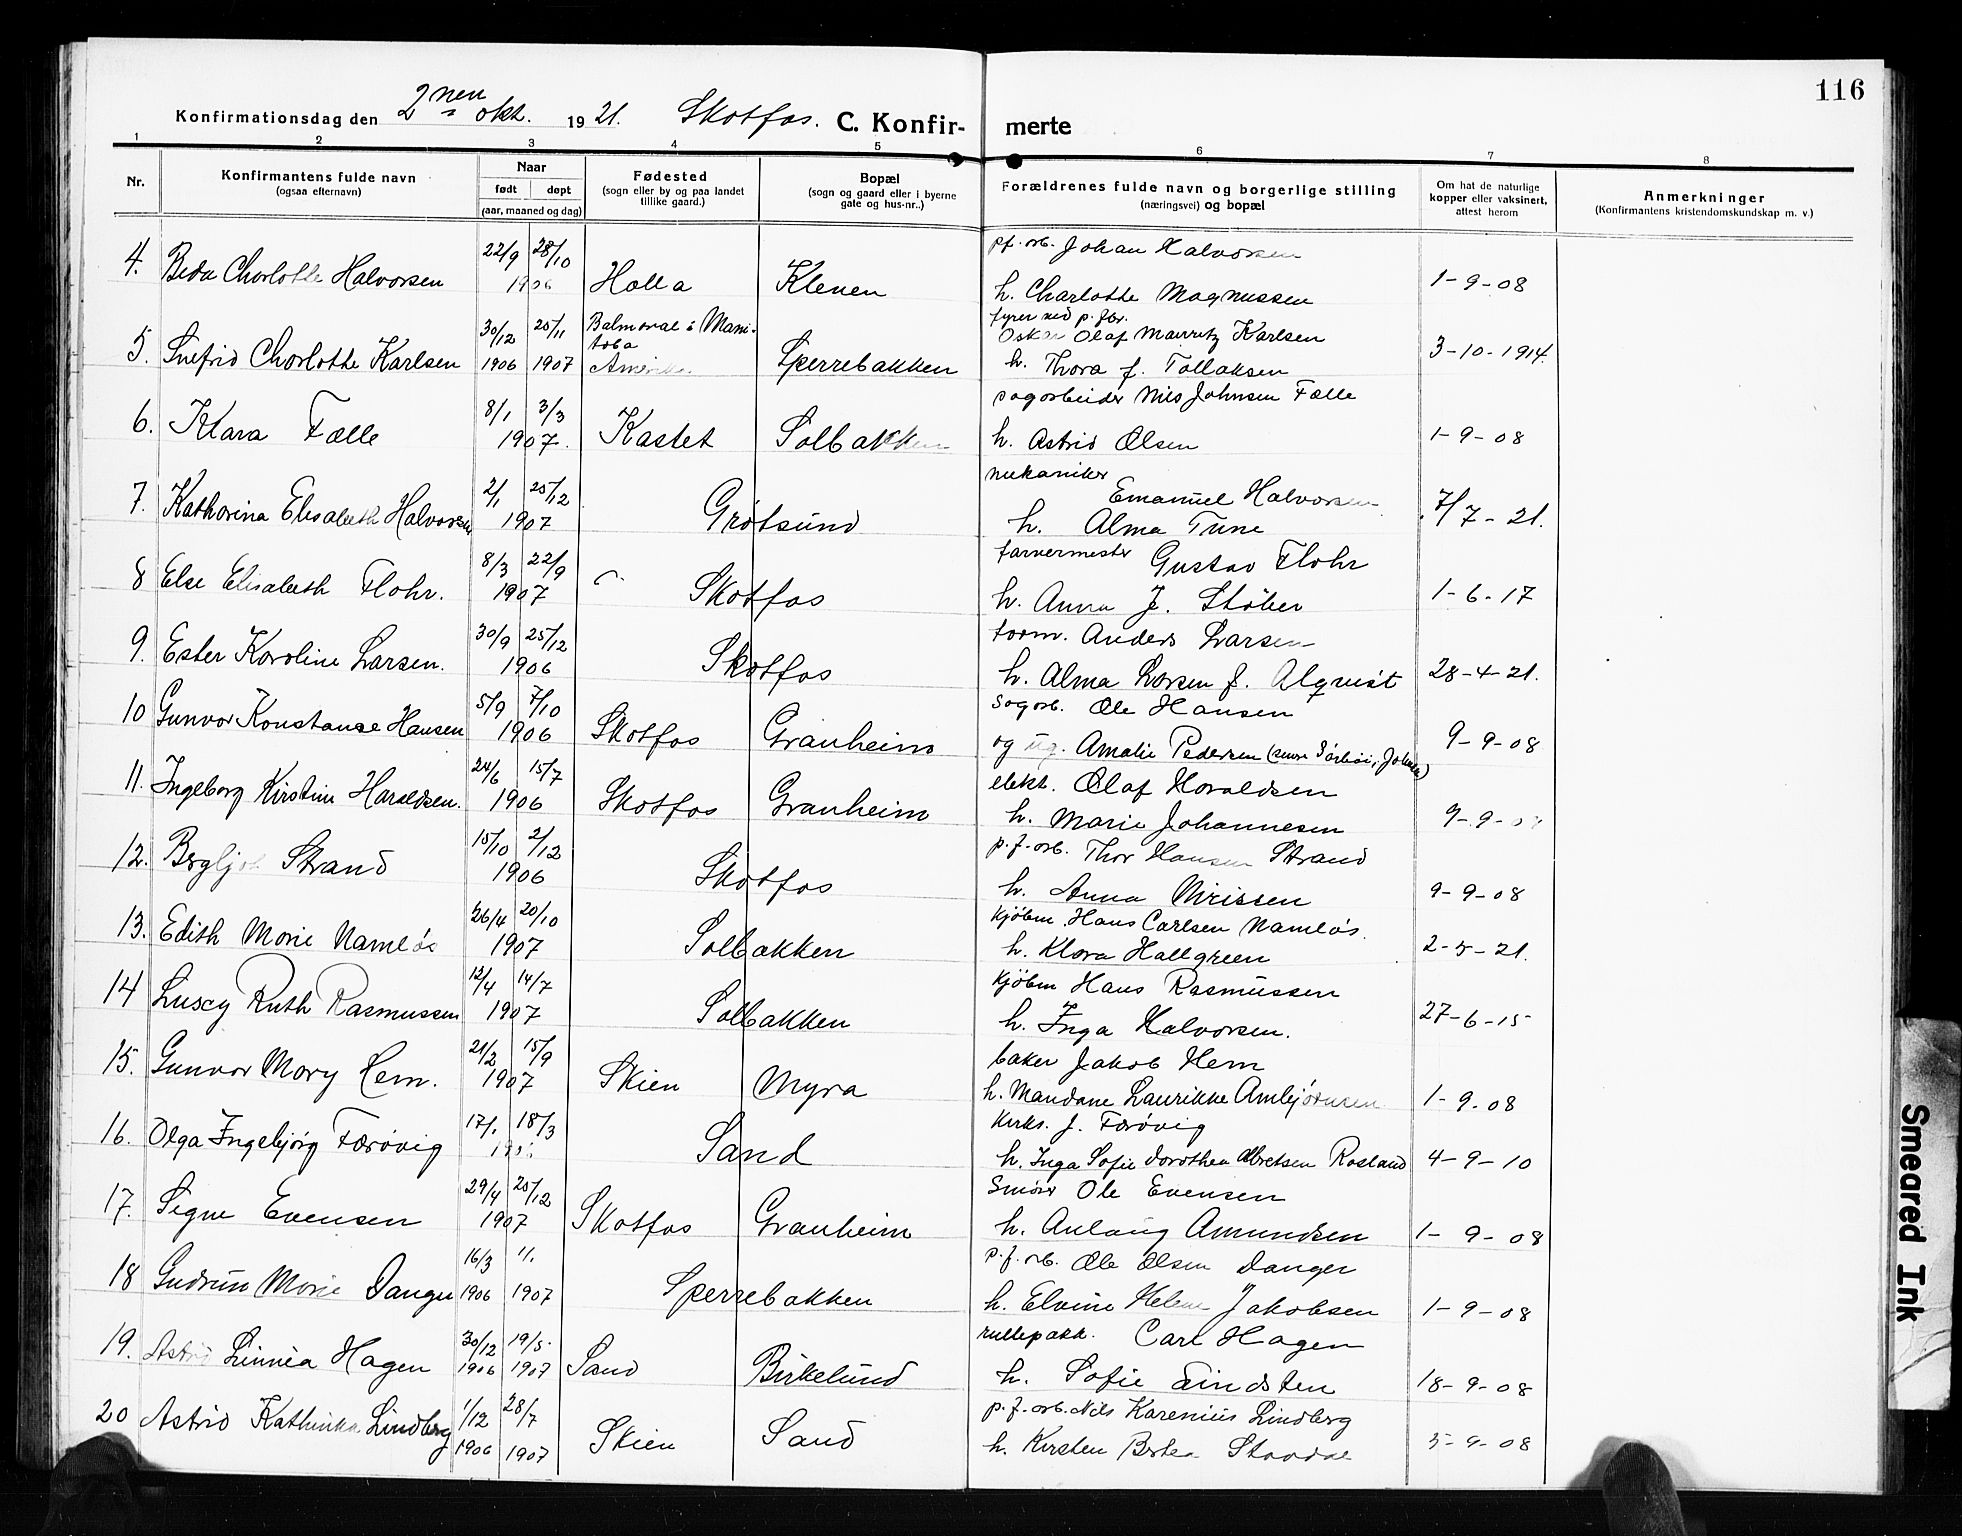 116
Konfirmationsdag den 2nen okt. 1921. Skotfos. C. Konfir- merte
1 2 3 4 5 6 7 8
Nr. Konfirmantens fulde navn (ogsaa efternavn) Naar født døpt (aar, maaned og dag) Fødested (sogn eller by og paa landet tillike gaard.) Bopæl (sogn og gaard eller i byerne gate og hus-nr.) Forældrenes fulde navn og borgerlige stilling (næringsvei) og bopæl Om hat de naturlige kopper eller vaksinert, attest herom Anmerkninger (Konfirmantens kristendomskundskap m. v.)
pf. arb. Johan Halvorsen
4. Beda Charlotte Halvorsen 22/9 28/10 1906 Holla Kleven h. Charlotte Magnussen 1-9-08
fyrer ved p. fbr.
Oskar Olaf Mauritz Karlsen
5. Snefrid Charlotte Karlsen 30/12 1906 25/11 1907 Balmoral i Mani-toba Amerika Sperrebakken h. Thora f. Tollaksen 3-10-1914.
sagarbeider Nils Johnsen Fælle
6. Klara Fælle 8/1 3/3 1907. Kastet Solbakken h. Astrid Olsen 1-9-08
mekaniker Emanuel Halvorsen
7. Katharina Elisabeth Halvorsen 2/1 25/12 1907 Grøtsund h. Alma Tune 7/7-21.
farvermester Gustav Flohr
8 Else Elisabeth Flohr. 8/3 22/9 1907 Skotfos h. Anna J. Stöber 1-6-17
form. Anders Larsen
9. Ester Karoline Larsen. 30/9 25/12 1906 Skotfos h. Alma Larsen f. Alqvist 28-4-21.
Sagarb. Ole Hansen
10 Gunvor Konstanse Hansen 5/9 7/10 1906 Skotfos Granheim og ug. Amalie Pedersen 9-9-08
elekt. Olaf Haraldsen
11. Ingeborg Kirstine Haraldsen. 24/6 15/7 1906 Skotfos Granheim h. Marie Johannesen 9-9-
p.f.-arb. Thor Hansen Strand
12. Bergljot Strand 15/10 2/12 1906 Skotfos h. Anna Nirissen 9-9-08
kjøbm. Hans Carlsen Namløs.
13. Edith Marie Namløs 26/4 20/10 1907 Solbakken h. Klara Hallgreen 2-5-21.
kjøbm Hans Rasmussen
14 Luscy Ruth Rasmussen 12/4 14/7 1907 Solbakken h. Inga Halvorsen. 27-6-15
baker Jakob Hem
15. Gunvor Mary Hem. 21/2 15/9 1907 Skien Myra h. Mandane Laurikke Ambjørnsen 1-9-08
Kirks. J. Færøvig
16. Olga Ingebjørg Færøvig 17/1 18/3 Sand h. Inga Sofie Dorothea Albretsen Rosland 4-9-10
Smører Ole Evensen
17. Signe Evensen 29/4 25/12 1907 Skotfos Granheim h. Anlaug Amundsen 1-9-08
p.f. arb. Ole Olsen Danger
18 Gudrun Marie Danger 16/3 1906 1/1 1907 Sperrebakken h. Elvine Helene Jakobsen 1-9-08
rullepakk. Carl Hagen
19. Astrid Linnéa Hagen 30/12 1906 19/5 1907 Sand Birkelund h. Sofie Lindsten 18-9-08
p.f. arb. Nils Karenius Lindberg
20 Astrid Kathinka Lindberg 1/12 1906 28/7 1907 Skien Sand h. Kirsten Bertea 5-9-08
Smeared Ink